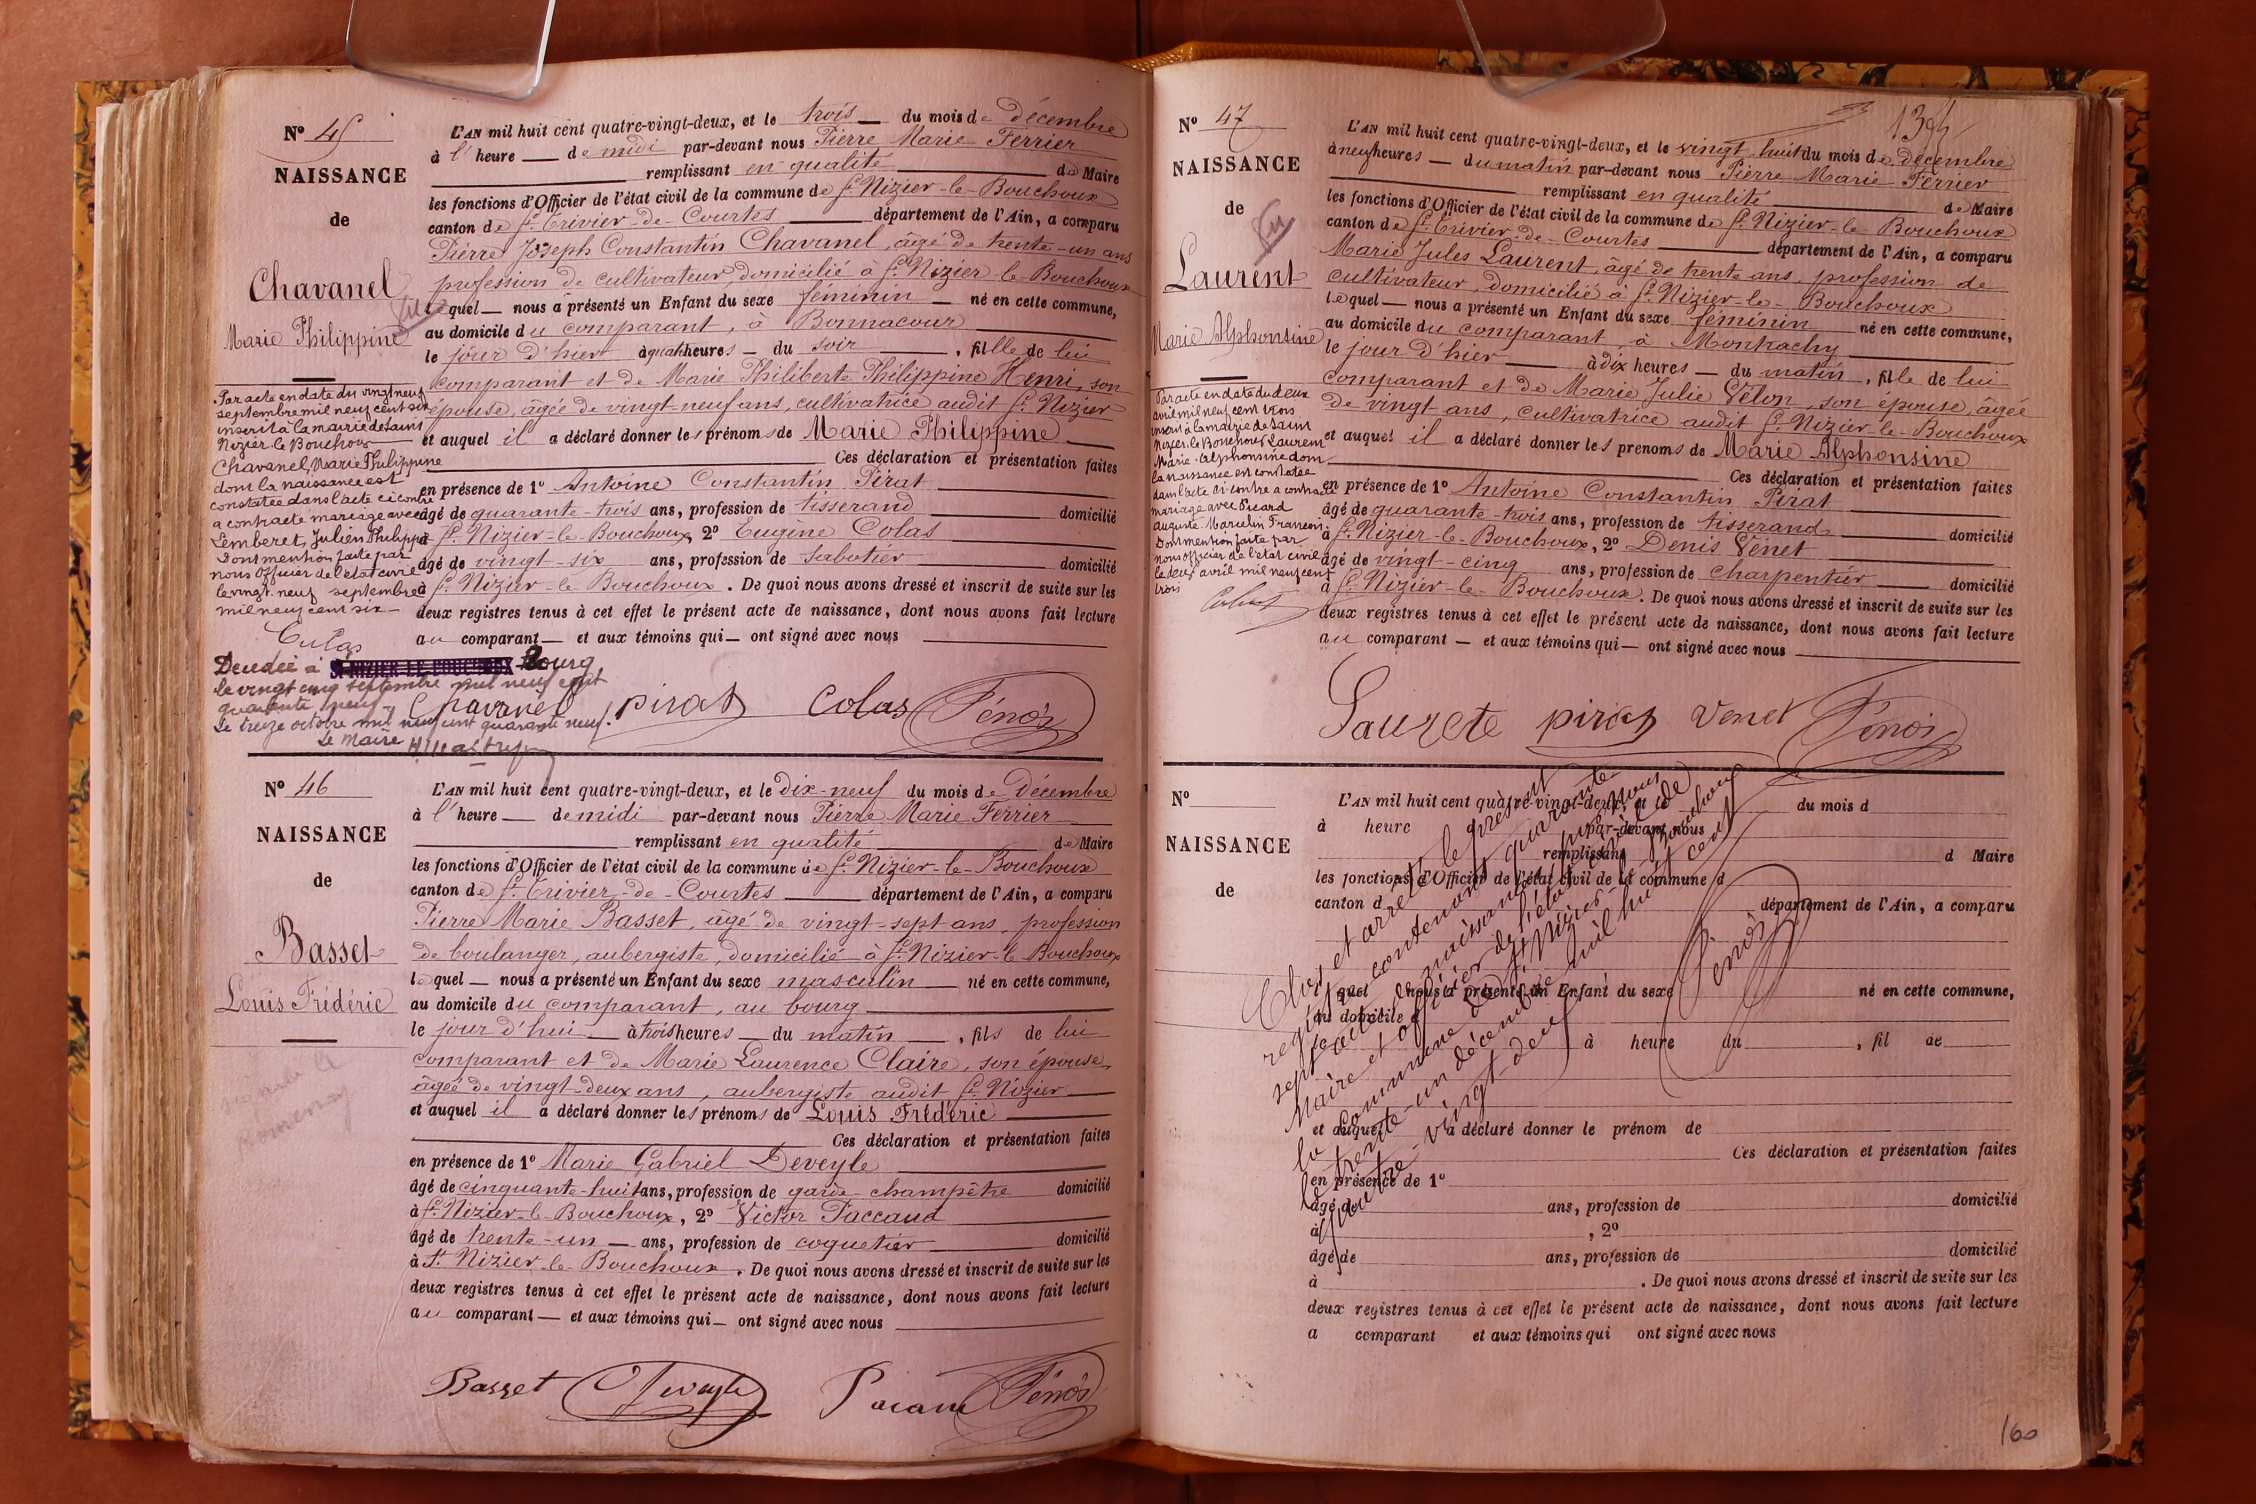 N° 45
NAISSANCE
de
Chavanel
Marie Philippine
Par acte en date du vingt neuf
septembre mil neuf cent six
inscrit à la mairie de Saint
Nizier le Bouchoux
Chavanel, Marie Philippine
dont la naissance est
constatée dans l'acte ci contre
a contracté mariage avec
Lemberet, Julien Philippe
Dont mention faite par
nous Officier de l'état civil
le vingt neuf septembre
mil neuf cent six
Colas
Décédée à ST-NIZIER-LE-BOUCHOUX Bourg
le vingt cinq septembre mil neuf cent
quarante neuf.
Le treize octobre mil neuf cent quarante neuf.
Le Maire
L'AN mil huit cent quatre-vingt-deux, et le trois du mois de décembre
à l'heure de midi par-devant nous Pierre Marie Ferrier
remplissant en qualité de Maire
les fonctions d'Officier de l'état civil de la commune de St Nizier-le-Bouchoux
canton de St Trivier-de-Courtes département de l'Ain, a comparu
Pierre Joseph Constantin Chavanel, âgé de trente-un ans
profession de cultivateur, domicilié à St Nizier-le-Bouchoux
lequel nous a présenté un Enfant du sexe féminin né en cette commune,
au domicile du comparant, à Bonnacour
le jour d'hier à quatre heures du soir, fille de lui
comparant et de Marie Philiberte Philippine Henri, son
épouse, âgée de vingt-neuf ans, cultivatrice audit St Nizier
et auquel il a déclaré donner les prénoms de Marie Philippine
Ces déclaration et présentation faites
en présence de 1° Antoine Constantin Pirat
âgé de quarante-trois ans, profession de tisserand domicilié
à St Nizier-le-Bouchoux, 2° Eugène Colas
âgé de vingt-six ans, profession de sabotier domicilié
à St Nizier-le-Bouchoux. De quoi nous avons dressé et inscrit de suite sur les
deux registres tenus à cet effet le présent acte de naissance, dont nous avons fait lecture
au comparant et aux témoins qui ont signé avec nous
Chavanel pirat Colas
N° 46
NAISSANCE
de
Basset
Louis Frédéric
L'AN mil huit cent quatre-vingt-deux, et le dix-neuf du mois de Décembre
à l'heure de midi par-devant nous Pierre Marie Ferrier
remplissant en qualité de Maire
les fonctions d'Officier de l'état civil de la commune de St Nizier-le-Bouchoux
canton de St Trivier-de-Courtes département de l'Ain, a comparu
Pierre Marie Basset, âgé de vingt-sept ans, profession
de boulanger, aubergiste, domicilié à St Nizier-le-Bouchoux
lequel nous a présenté un Enfant du sexe masculin né en cette commune,
au domicile du comparant, au bourg
le jour d'hui à trois heures du matin, fils de lui
comparant et de Marie Laurence Claire, son épouse,
âgée de vingt-deux ans, aubergiste audit St Nizier
et auquel il a déclaré donner les prénoms de Louis Frédéric
Ces déclaration et présentation faites
en présence de 1° Marie Gabriel Deveyle
âgé de cinquante-huit ans, profession de garde-champêtre domicilié
à St Nizier-le-Bouchoux, 2° Victor Paccaud
âgé de trente-un ans, profession de coquetier domicilié
à St Nizier-le-Bouchoux. De quoi nous avons dressé et inscrit de suite sur les
deux registres tenus à cet effet le présent acte de naissance, dont nous avons fait lecture
au comparant et aux témoins qui ont signé avec nous
Basset Deveyle
N° 47
NAISSANCE
de
Laurent
Marie Alphonsine
Par acte en date du deux
avril mil neuf cent trois
inscrit à la mairie de Saint
Nizier-le-Bouchoux Laurent
Marie-Alphonsine dont
la naissance est constatée
dans l'acte ci-contre a contracté
mariage avec Picard
Auguste-Marcelin François.
Dont mention faite par
nous officier de l'état civil
le deux avril mil neuf cent
trois
L'AN mil huit cent quatre-vingt-deux, et le vingt-huit du mois de décembre
à neuf heures du matin par-devant nous Pierre Marie Ferrier
remplissant en qualité de Maire
les fonctions d'Officier de l'état civil de la commune de St Nizier-le-Bouchoux
canton de St Trivier-de-Courtes département de l'Ain, a comparu
Marie Jules Laurent, âgé de trente ans, profession de
cultivateur, domicilié à St Nizier-le-Bouchoux
lequel nous a présenté un Enfant du sexe féminin né en cette commune,
au domicile du comparant, à Montrachy
le jour d'hier à dix heures du matin, fille de lui
comparant et de Marie Julie Vélon, son épouse, âgée
de vingt ans, cultivatrice audit St Nizier-le-Bouchoux
et auquel il a déclaré donner les prénoms de Marie Alphonsine
Ces déclaration et présentation faites
en présence de 1° Antoine Constantin Pirat
âgé de quarante-trois ans, profession de tisserand domicilié
à St Nizier-le-Bouchoux, 2° Denis Vénet
âgé de vingt-cinq ans, profession de charpentier domicilié
à St Nizier-le-Bouchoux. De quoi nous avons dressé et inscrit de suite sur les
deux registres tenus à cet effet le présent acte de naissance, dont nous avons fait lecture
au comparant et aux témoins qui ont signé avec nous
pirat Venet
N°
NAISSANCE
de
L'AN mil huit cent quatre-vingt-deux, et le du mois d
à heure par-devant nous
remplissant d Maire
les fonctions d'Officier de l'état civil de la commune d
canton d département de l'Ain, a comparu
l quel nous a présenté un Enfant du sexe né en cette commune,
au domicile d
à heure du , fil de
et auquel a déclaré donner le prénom de
Ces déclaration et présentation faites
en présence de 1°
âgé de ans, profession de domicilié
à , 2°
âgé de ans, profession de domicilié
à . De quoi nous avons dressé et inscrit de suite sur les
deux registres tenus à cet effet le présent acte de naissance, dont nous avons fait lecture
a comparant et aux témoins qui ont signé avec nous
Clos et arrêté le présent
registre contenant quarante
sept actes de naissance par nous
Maire et officier de l'état civil de
la commune de St Nizier-le-Bouchoux
le trente-un décembre mil huit cent
quatre-vingt-deux
160